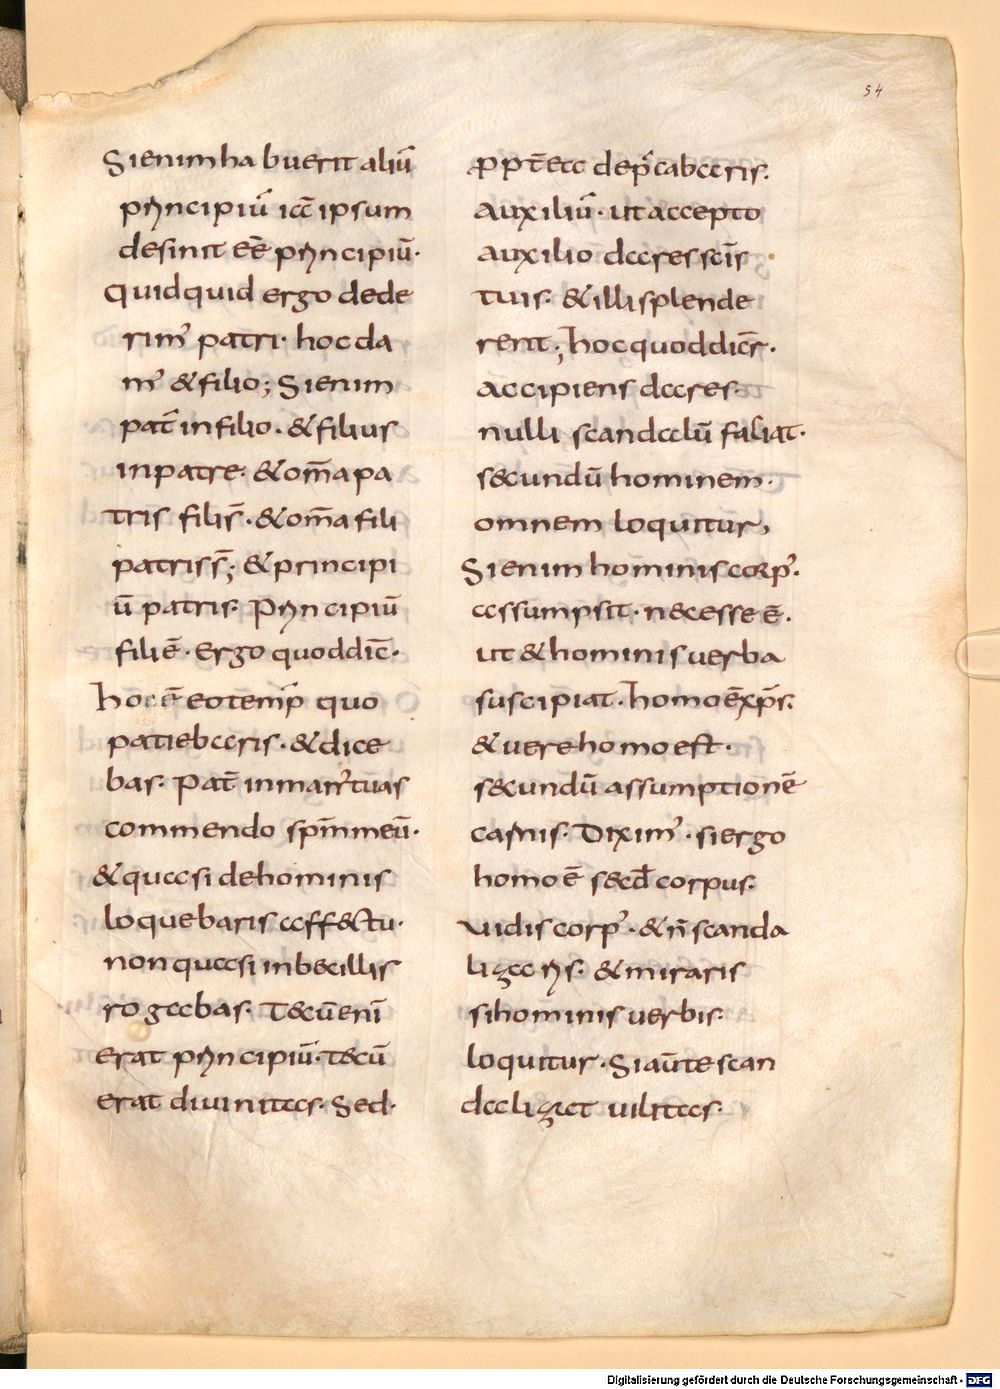 54
Si enim habuerit aliū
principiū iā ipsum
desinit eē principiū·
Quidquid ergo dede
rim' patri· hoc da
m' & filio; Si enim
pat̄ in filio· & filius
in patre· & om̄a pa
tris filii s̄· & om̄a fili
patris s̄; & principi
ū patris· Principiū
fili ē· Ergo quod dic̄·
hoc ē eo temp̄ quo
patiebaris· & dice
bas· Pat̄ in man' tuas
commendo sp̄m meū·
& quasi de hominis
loquebaris affectu·
non quasi inbecillis
rogabas· Tecū enī
erat principiū· tecū
erat divinitas· Sed·
ꝓpt̄ea dep̄cabaris·
auxiliū· ut accepto
auxilio dares sc̄is
tuis· & illi splende
rent; hoc quod dic̄r·
accipiens dares·
nulli scandalū faciat·
secundū hominem·
omnem loquitur,
Si enim hominis corp'·
assumpsit· necesse ē·
ut & hominis verba
suscipiat· homo ē xp̄s·
& vere homo est·
secundū assumptionē
carnis· Dixim'· si ergo
homo ē secd̄ corpus·
vidis corp'· & n̄ scanda
ligaris· & miraris
si hominis verbis·
loquitur· Si aūte scan
daligat vilitas·
Digitalisierung gefördert durch die Deutsche Forschungsgemeinschaft - DFG